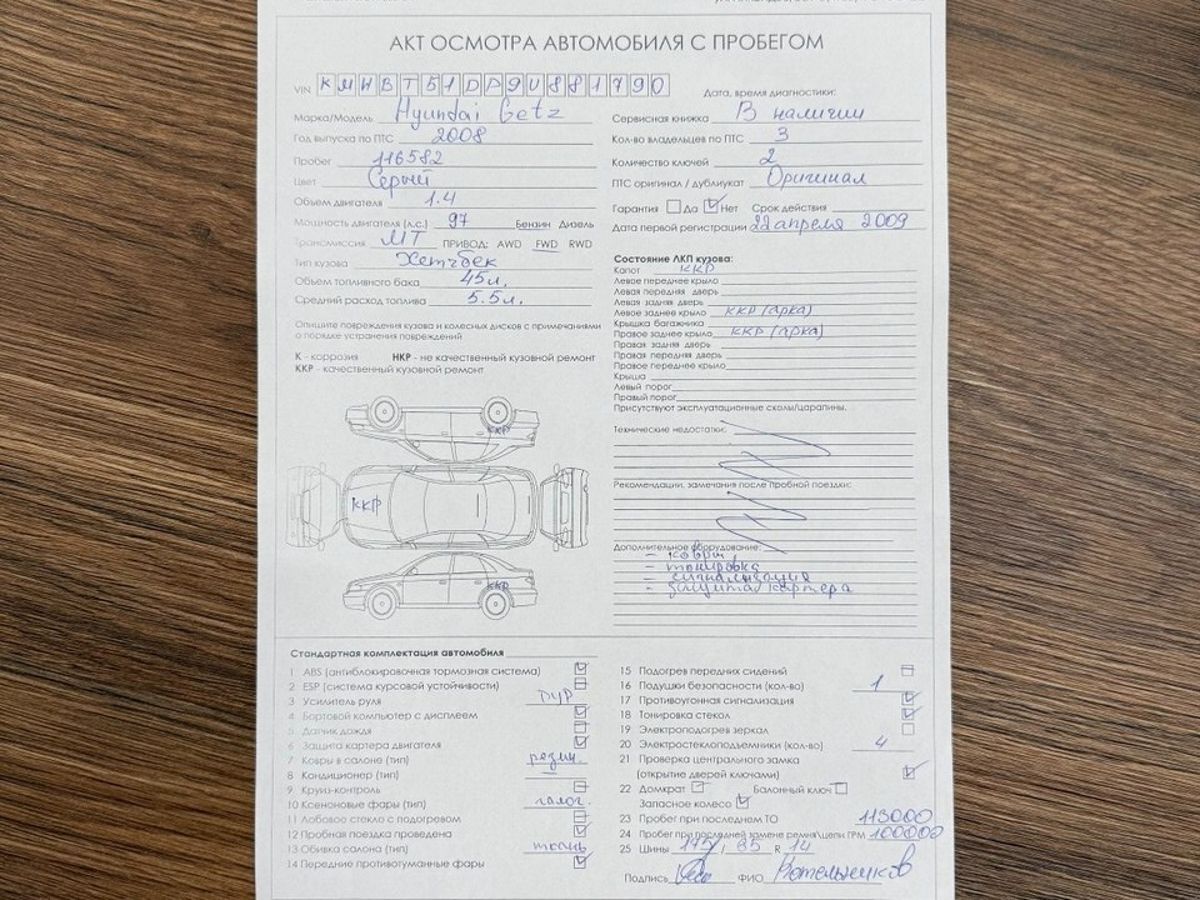 АКТ ОСМОТРА АВТОМОБИЛЯ С ПРОБЕГОМ
VIN KMHBT51DP9U881790
Дата, время диагностики:
Марка/Модель Hyundai Getz
Год выпуска по ПТС 2008
Пробег 116582
Цвет Серый
Объем двигателя 1.4
Мощность двигателя (л.с.) 97 Бензин Дизель
Трансмиссия МТ ПРИВОД: AWD FWD RWD
Тип кузова Хетчбек
Объем топливного бака 45л.
Средний расход топлива 5.5л.
Опишите повреждения кузова и колесных дисков с примечаниями
о порядке устранения повреждений
К - коррозия НКР - не качественный кузовной ремонт
ККР - качественный кузовной ремонт
ККР
ККР
ККР
Сервисная книжка В наличии
Кол-во владельцев по ПТС 3
Количество ключей 2
ПТС оригинал / дубликат Оригинал
Гарантия Да Нет Срок действия
Дата первой регистрации 22 апреля 2009
Состояние ЛКП кузова:
Капот ККР
Левое переднее крыло
Левая передняя дверь
Левая задняя дверь
Левое заднее крыло ККР (арка)
Крышка багажника
Правое заднее крыло ККР (арка)
Правая задняя дверь
Правая передняя дверь
Правое переднее крыло
Крыша
Левый порог
Правый порог
Присутствуют эксплуатационные сколы/царапины.
Технические недостатки:
Рекомендации, замечания после пробной поездки:
Дополнительное оборудование:
- ковры,
- тонировка
- сигнализация
- защита картера
Стандартная комплектация автомобиля
1 ABS (антиблокировочная тормозная система)
2 ESP (система курсовой устойчивости)
3 Усилитель руля ГУР
4 Бортовой компьютер с дисплеем
5 Датчик дождя
6 Защита картера двигателя
7 Ковры в салоне (тип) резин.
8 Кондиционер (тип) —
9 Круиз-контроль
10 Ксеноновые фары (тип) галог.
11 Лобовое стекло с подогревом
12 Пробная поездка проведена
13 Обивка салона (тип) ткань
14 Передние противотуманные фары
15 Подогрев передних сидений
16 Подушки безопасности (кол-во) 1
17 Противоугонная сигнализация
18 Тонировка стекол
19 Электроподогрев зеркал
20 Электростеклоподъемники (кол-во) 4
21 Проверка центрального замка
(открытие дверей ключами)
22 Домкрат Балонный ключ
Запасное колесо
23 Пробег при последнем ТО 113000
24 Пробег при последней замене ремня\цепи ГРМ 100000
25 Шины 175/ 65 R 14
Подпись ФИО Котельников